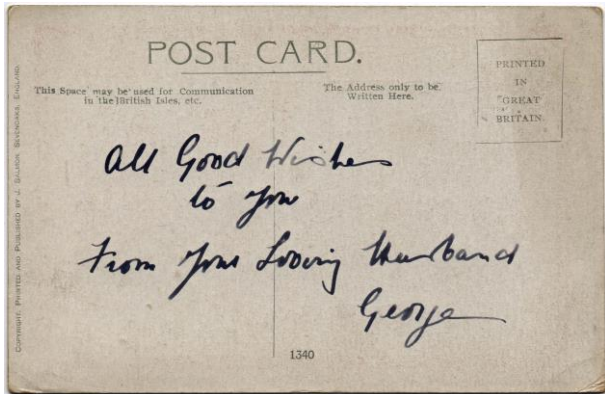 POST CARD.
This Space may be used for Communication
in the British Isles, etc.
The Address only to be
Written Here.
PRINTED
IN
GREAT
BRITAIN.
All Good Wishes
to you
From your Loving Husband
George
1340
COPYRIGHT. PRINTED AND PUBLISHED BY J. SALMON SEVENOAKS, ENGLAND.